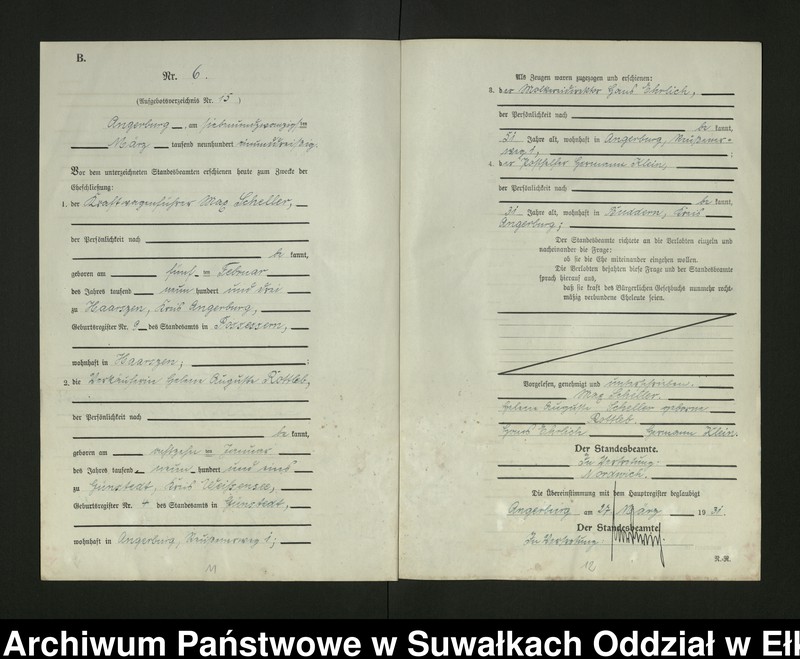 B.
Nr. 6.
(Aufgebotsverzeichnis Nr. 15)
Angerburg, am siebenundzwanzigsten
März tausend neunhundert einunddreißig.
Vor dem unterzeichneten Standesbeamten erschienen heute zum Zwecke der
Eheschließung:
1. der Kraftwagenführer Max Scheller,
der Persönlichkeit nach
be kannt,
geboren am fünf ten Februar
des Jahres tausend neun hundert und drei
zu Haarszen, Kreis Angerburg,
Geburtsregister Nr. 9 des Standesamts in Possessern,
wohnhaft in Haarszen;
2. die Verkäuferin Helene Auguste Rottleb,
der Persönlichkeit nach
be kannt,
geboren am ten Januar
des Jahres tausend neun hundert und
zu Günstedt, Kreis Weißensee,
Geburtsregister Nr. 4 des Standesamts in Günstedt,
wohnhaft in Angerburg, 1;
11
Als Zeugen waren zugezogen und erschienen:
3. der Molkereidirektor Hans Ehrlich,
der Persönlichkeit nach
be kannt,
31 Jahre alt, wohnhaft in Angerburg,
weg 1;
4. der Hermann Klein,
der Persönlichkeit nach
be kannt,
31 Jahre alt, wohnhaft in Kreis
Angerburg;
Der Standesbeamte richtete an die Verlobten einzeln und
nacheinander die Frage:
ob sie die Ehe miteinander eingehen wollen.
Die Verlobten bejahten diese Frage und der Standesbeamte
sprach hierauf aus,
daß sie kraft des Bürgerlichen Gesetzbuchs nunmehr recht-
mäßig verbundene Eheleute seien.
Vorgelesen, genehmigt und unterschrieben.
Max Scheller.
Helene Auguste Scheller geborene
Rottleb.
Hans Ehrlich Hermann Klein.
Der Standesbeamte.
In Vertretung:
Nordwich.
Die Übereinstimmung mit dem Hauptregister beglaubigt
Angerburg am 27. März 1931.
Der Standesbeamte
In Vertretung:
R.-R.
12
Archiwum Państwowe w Suwałkach Oddział w Ełk